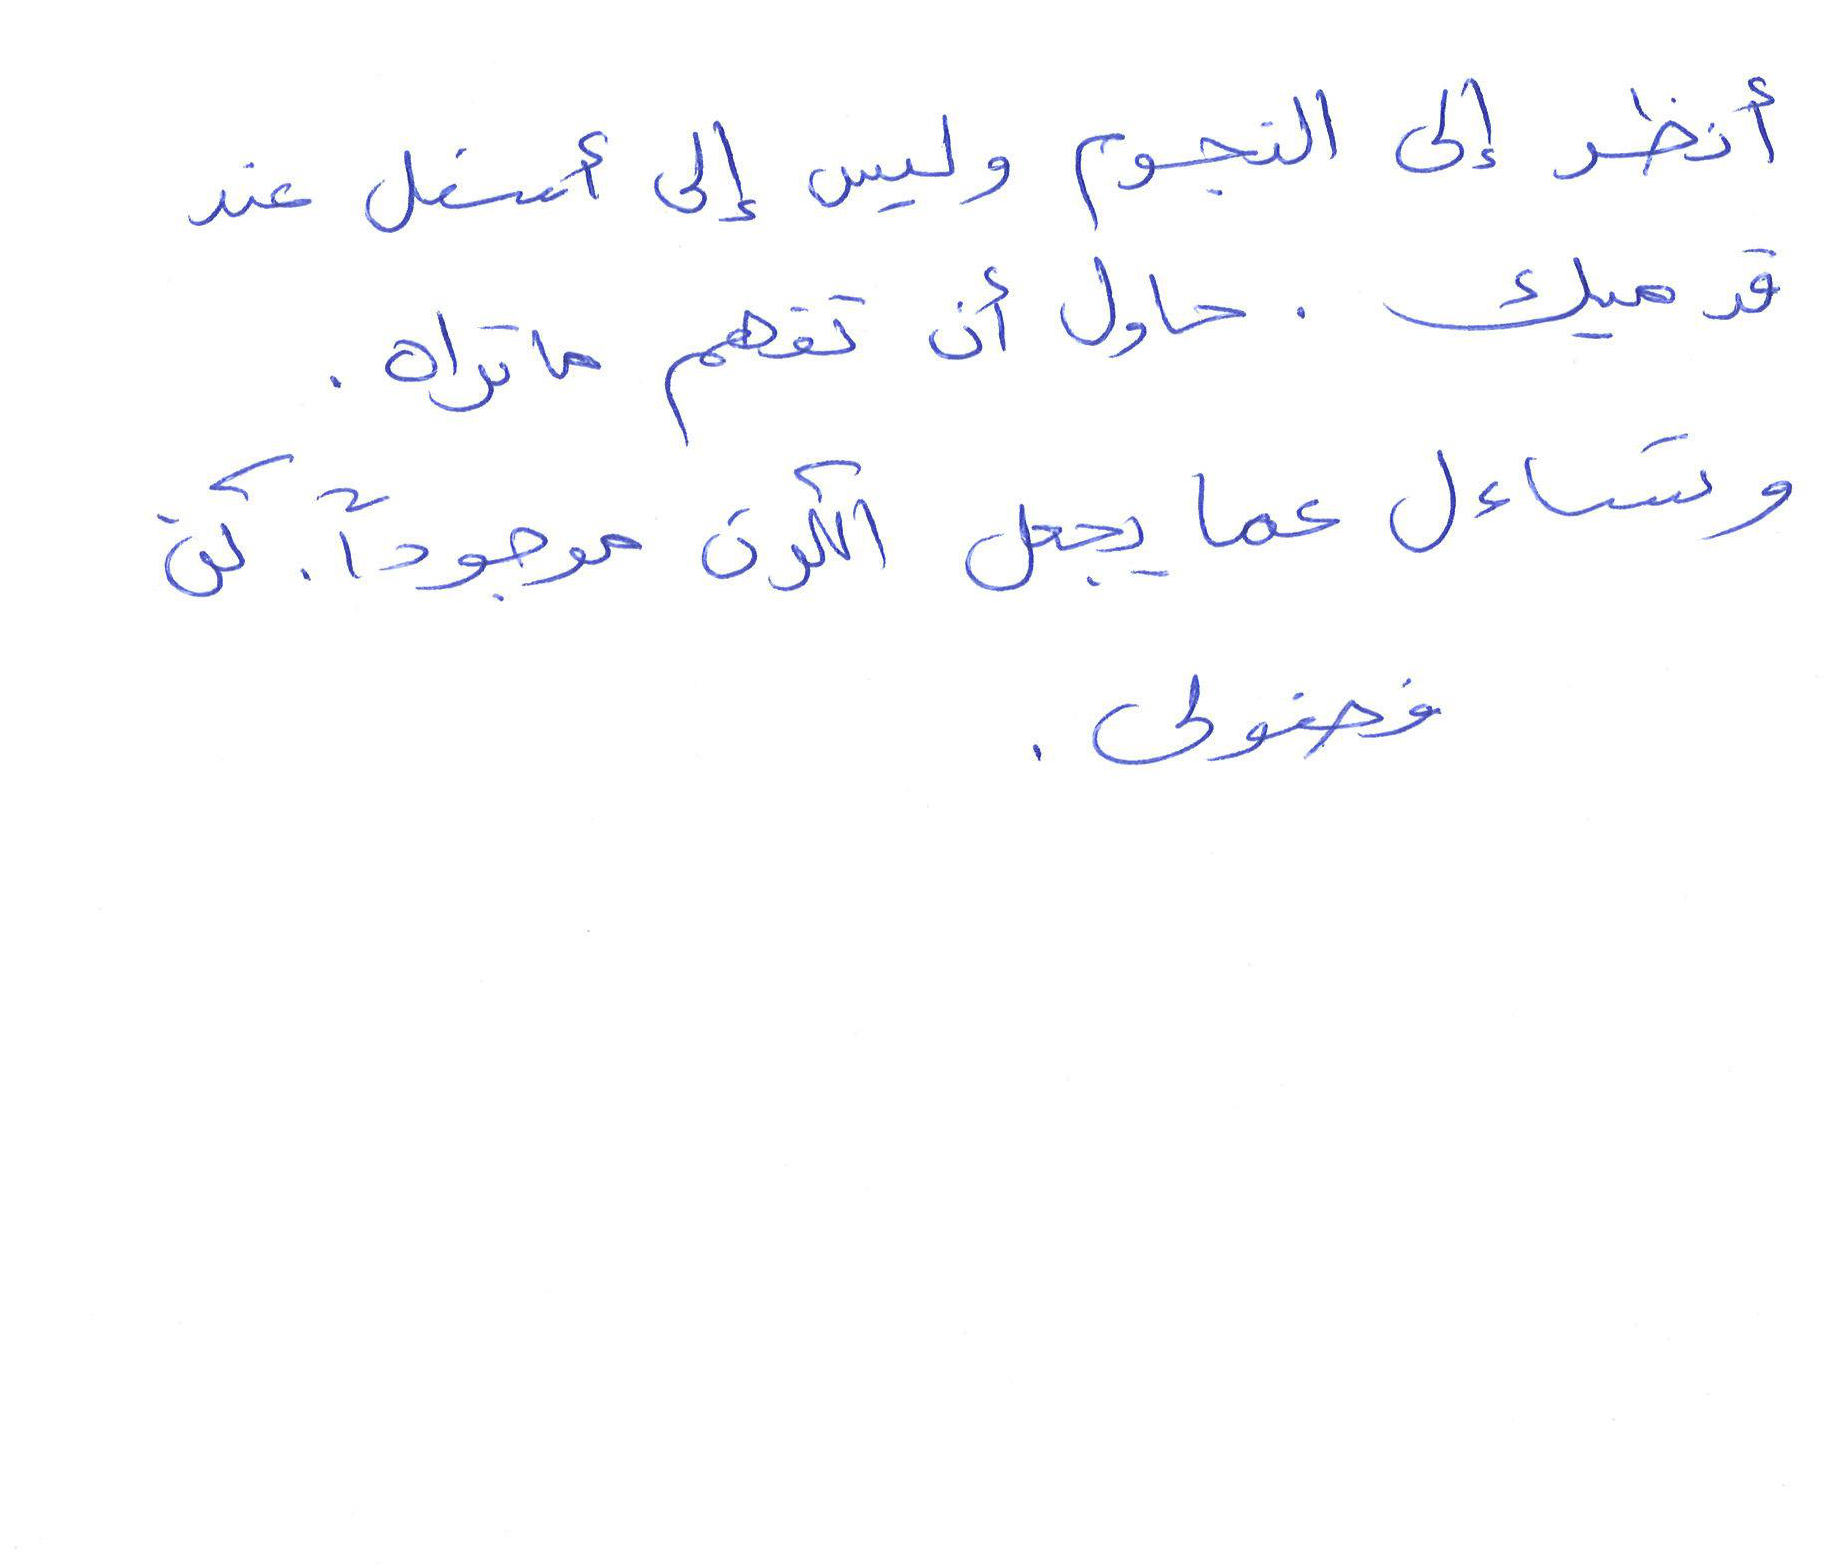 أنظر إلى النجوم وليس إلى أسفل عند
قدميك . حاول أن تفهم ما تراه .
وتساءل عما يجعل الكون موجوداً . كن
فضولى .